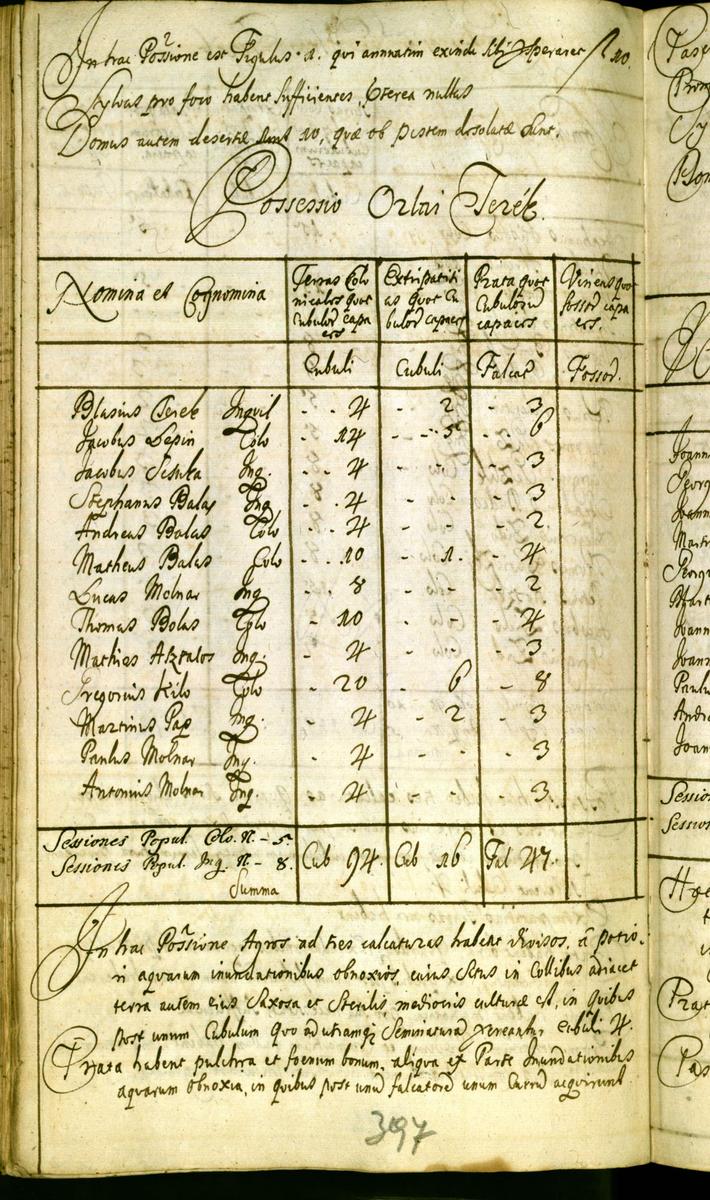 In hac Poss̃ione est Figulus 1. qui annuatim exinde sibi speraret f 10.
Sylvas pro foco habent sufficientes, Pterea nullas
Domus autem desertæ sunt 10, quæ ob pestem desolatæ sunt.
Possessio Orlai Terék.
Nomina et Cognomina | Terras Colonicales quot Cubulor̃ capaces | Extirpatitias quot Cubulor̃ capaces | Prata quot Cubulorũ capaces | Vineas quot fossor̃ capaces.
Cubuli | Cubuli | Falcat̃ | Fossor̃.
Blasius Terek Inquil - . 4 - 2 - 3
Jacobus Lepin Colo - . 14 - - 5 - . 6
Jacobus Inq. - . 4 - - - - 3
Stephanus Balas Inq - . 4 - - - - 3
Andreas Balas Colo - . 4 - - - - 2
Matheus Balas Colo - . 10 - 1. - 4
Lucas Molnar Inq - . 8 - - - - 2
Thomas Bolas Colo - 10 - - - - 4
Mathias Asztalos Inq. - 4 - - - - 3
Gregorius Kilo Colo - 20 - 6 - 8
Martinus Pap Inq. - 4 - 2 - 3
Paulus Molnar Inq. - 4 - - - - 3
Antonius Molnar Inq. - 4 - - - - 3
Sessiones Popul. Colo. N. - 5.
Sessiones Popul. Inq. N - 8.
Summa | Cub 94. | Cub 16 | Fal 47.
In hac Poss̃ione Agros ad tres calcaturas habent divisos, â potiori
aquarum inundationibus obnoxios, cuius situs in Collibus adiacet
terra autem eius Saxosa et Sterilis mediocris culturæ est, in quibus
post unum Cubulum quo ad utramq; Seminaturã Cubuli 4.
Prata habent pulchra et foenum bonum, aliqua ex Parte Inundationibus
aquarum obnoxia, in quibus post unũ falcatorẽ unum Currũ acquirunt
397